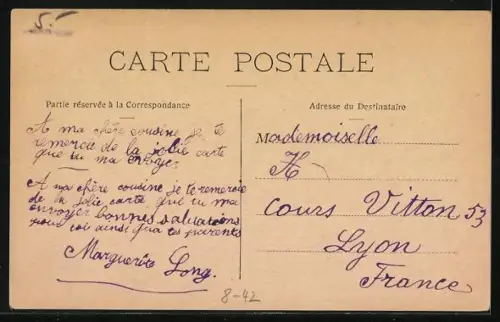 5.-
CARTE POSTALE
Partie réservée à la Correspondance
Adresse du Destinataire
A ma chère cousine je te
remercie de la jolie carte
que tu ma envoyer
A ma chère cousine je te remercie
de la jolie carte que tu ma
envoyer bonnes salutations
pour toi ainsi qua tes parents
Marguerite Long.
Mademoiselle
H
cours Vitton 53
Lyon
France
8-42